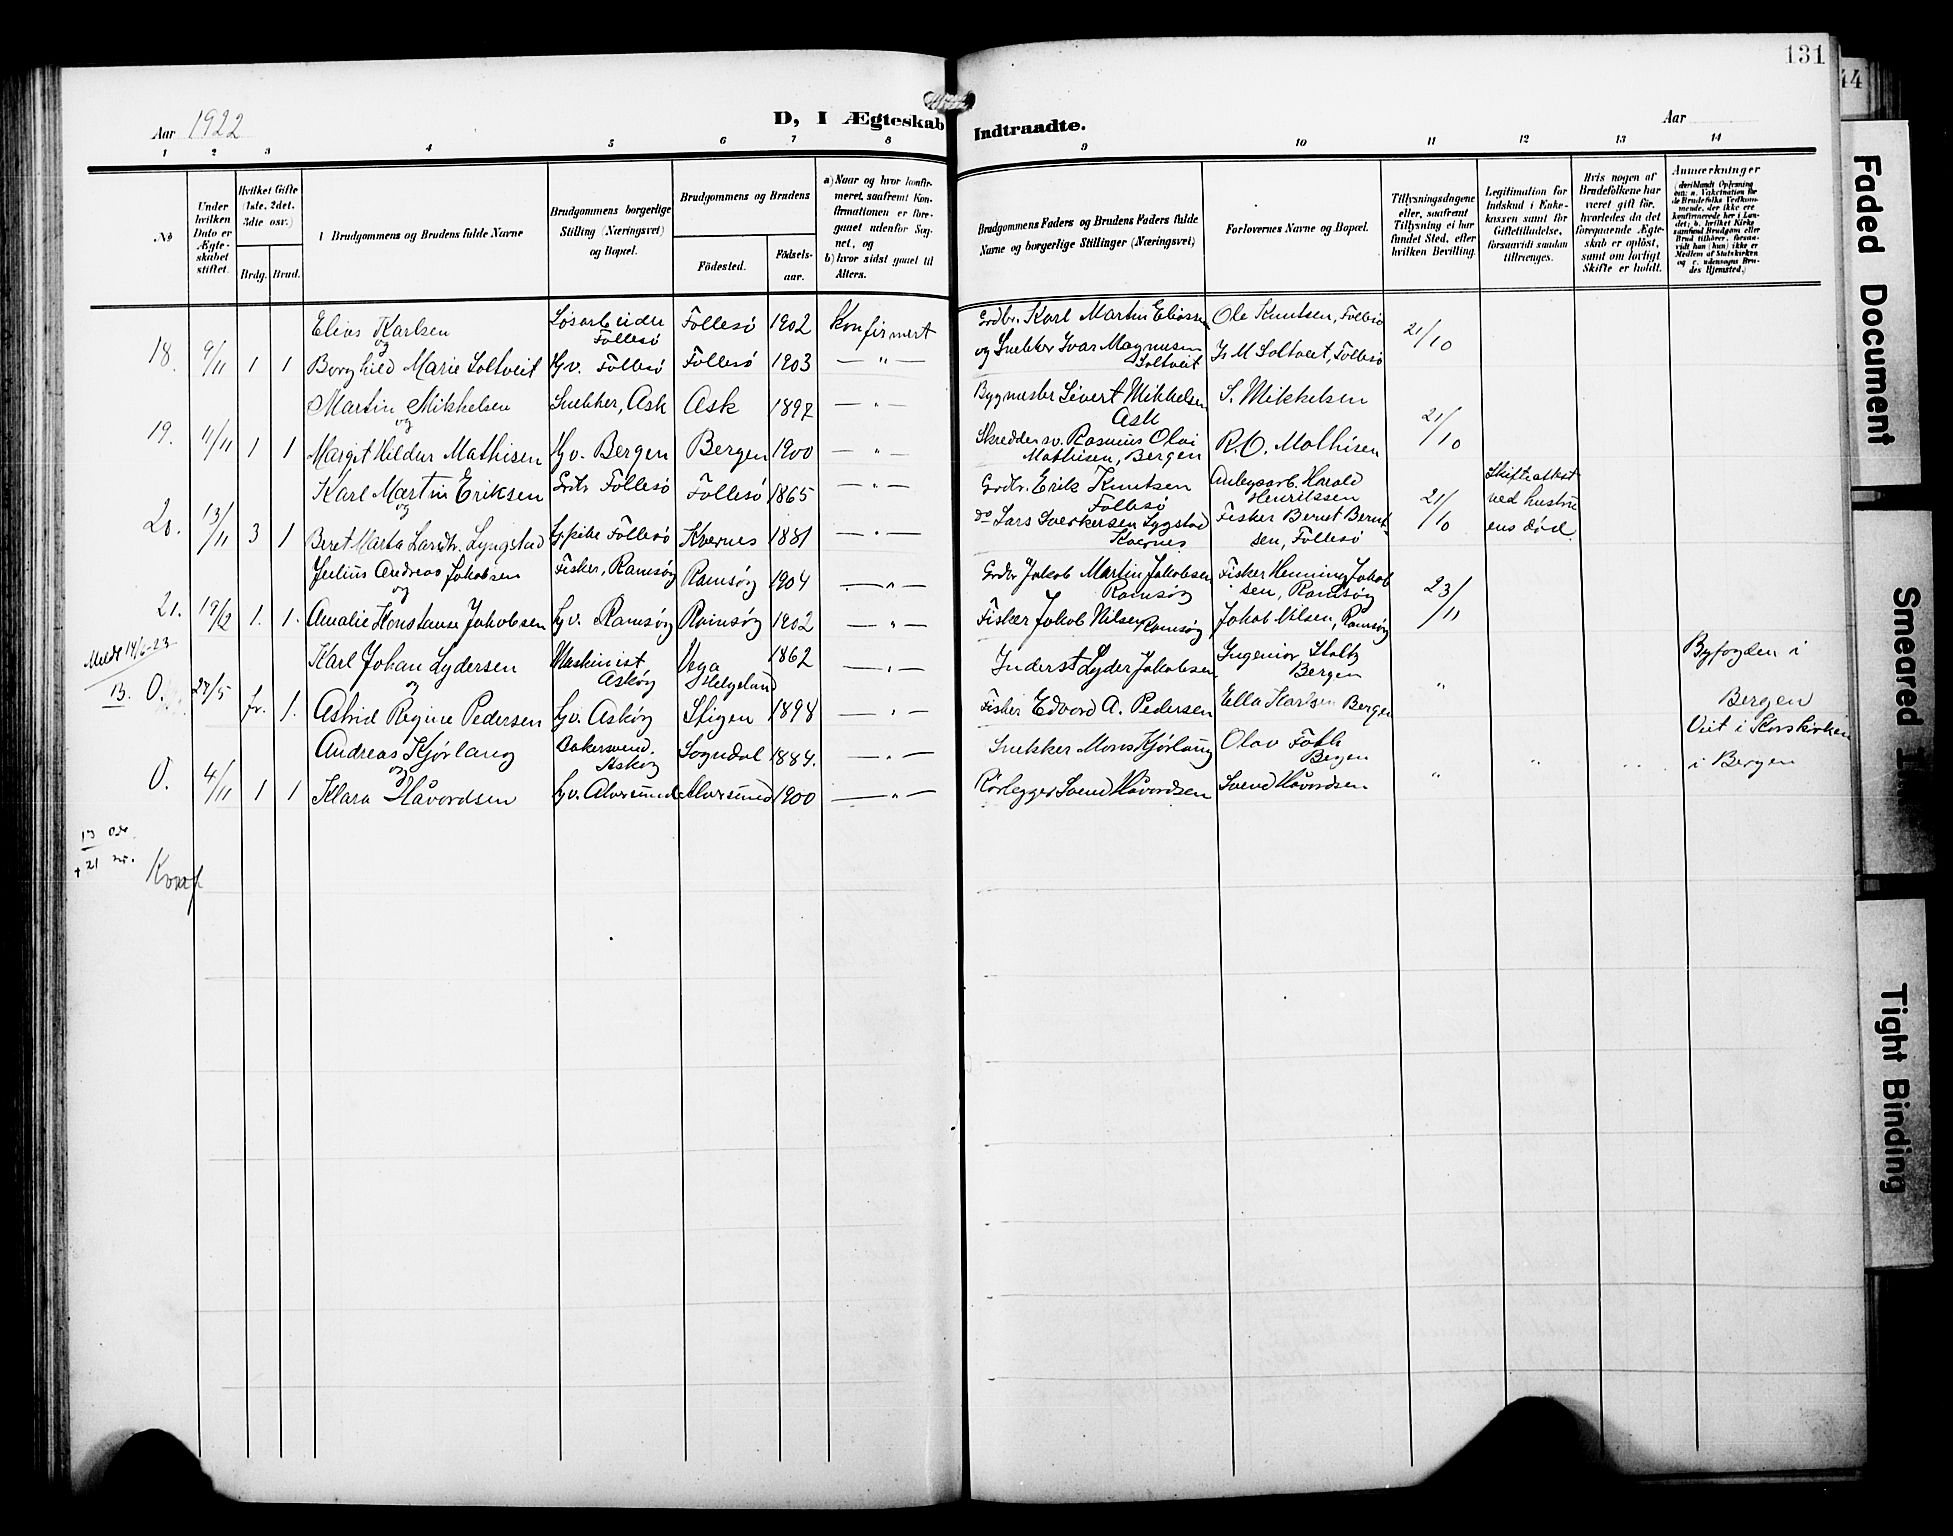 131
44
Aar 1922
D, I Ægteskab Indtraadte.
Aar
1 2 3 4 5 6 7 8 9 10 11 12 13 14
No
Under hvilken Dato er Ægteskabet stiftet.
Hvilket Gifte (1ste, 2det, 3die osv.)
Brdg. Brud.
Brudgommens og Brudens fulde Navne
Brudgommens borgerlige Stilling (Næringsvei) og Bopæl.
Brudgommens og Brudens
Födested.
Födsels-aar.
a) Naar og hvor konfirmeret, saafremt Konfirmationen er foregaaet udenfor Sognet, og
b) hvor sidst gaaet til Alters.
Brudgommens Faders og Brudens Faders fulde Navne og borgerlige Stillinger (Næringsvei)
Forlovernes Navne og Bopæl.
Tillysningsdagene eller, saafremt Tillysning ei har fundet Sted, efter hvilken Bevilling.
Legitimation for Indskud i Enkekassen samt for Giftetilladelse, forsaavidt saadan tiltrænges.
Hvis nogen af Brudefolkene har været gift för, hvorledes da det foregaaende Ægteskab er oplöst, samt om lovligt Skifte er holdt.
Anmerkninger
18. 9/11 1 1
Elias Karlsen
og
Borghild Marie Soltveit
Løsarbeider Follesö
Hv. Follesö
Follesö 1902 Konfirmert
Follesö 1903 — " —
Grdbr. Karl Martin Eliassen
og Snekker Ivar Magnusen Soltveit
Ole Knutsen, Follesö
I. M Soltveit, Follesö
21/10
19. 11/11 1 1
Martin Mikkelsen
og
Margit Hildur Mathisen
Snekker, Ask
Hv. Bergen
Ask 1897 — " —
Bergen 1900 — " —
Bygmester Sivert Mikkelsen Ask
Skreddersv. Rasmus Olai Mathisen, Bergen
S. Mikkelsen
R. O. Mathisen
21/10
20. 13/11 3 1
Karl Martin Eriksen
og
Beret Marta Larsdtr. Lyngstad
Grdbr Follesö
Follesö
Follesö 1865 — " —
Kvernes 1881 — " —
Grdbr. Erik Knutsen Follesö
do Lars Sverkersen Lygstad Kvernes
Anlegsarb. Harald Henrikssen
Fisker Bernt Berntsen, Follesö
21/10
Skifteattest ved hustruens död.
21. 19/12 1. 1.
Julius Andreas Jakobsen
og
Amalie Konstanse Jakobsen
Fisker, Ramsøy
Hv. Ramsøy
Ramsøy 1904 — " —
Ramsøy 1902 — " —
Grdbr Jakob Martin Jakobsen Ramsøy
Fisker Jakob Nilsen Ramsøy
Fisker Henning Jakobsen, Ramsøy
Jakob Nilsen, Ramsøy
23/11
Meldt 14/6-23
13. O. 27/5 fr. 1.
Karl Johan Lydersen
og
Astrid Regine Pedersen
Maskinist Askøy
Hv. Askøy
Vega Helgeland 1862 — " —
Stigen 1898 — " —
Inderst Lyder Jakobsen
Fisker Edvard A. Pedersen
Ingeniør Stoltz Bergen
Ella Karlsen Bergen
"
Byfogden i Bergen
O. 4/11 1 1
Andreas Kjørlaug
og
Klara Håvordsen
Bakersvend. Askøy
Hv. Alversund
Sogndal 1884. — " —
Alversund 1900 — " —
Snekker Mons Kjørlaug
Rørlegger Svend Håvordsen
Olav Foth Bergen
Svend Håvordsen
" " "
Viet i Korskirken i Bergen
+ 21 nr.
Faded Document
Smeared
Tight Binding